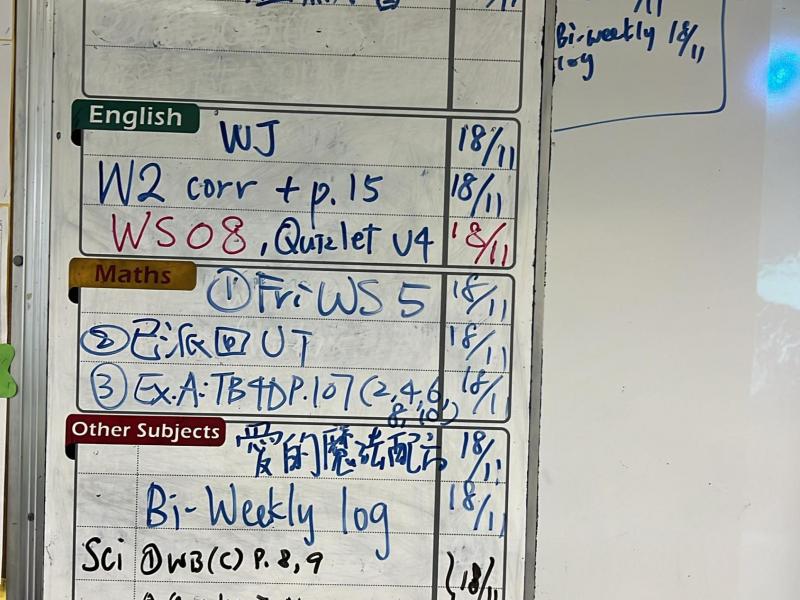 Bi-weekly 18/11
log
English
WJ 18/11
W2 corr + p.15 18/11
WS08, Quizlet U4 18/11
Maths
① Fri WS 5 18/11
② 已派回 UT 18/11
③ Ex.A: TB4D P.107 (2,4,6, 18/11
8,10)
Other Subjects
愛的魔法配方 18/11
Bi-Weekly log 18/11
Sci ① WB(C) P. 8,9
18/11